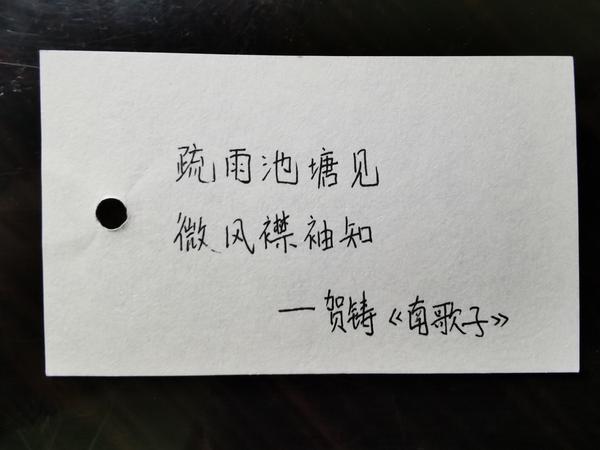 疏雨池塘见
微风襟袖知
—贺铸《南歌子》